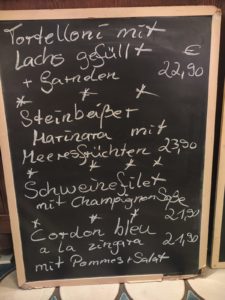 Tortelloni mit
Lachs gefüllt €
+ Garnelen 22,90
* * *
Steinbeißer
Marinara mit
Meeresfrüchten 23,90
* * *
Schweinefilet
mit Champignon Soße
21,90
* *
Cordon bleu
a la zingara 21,90
mit Pommes + Salat